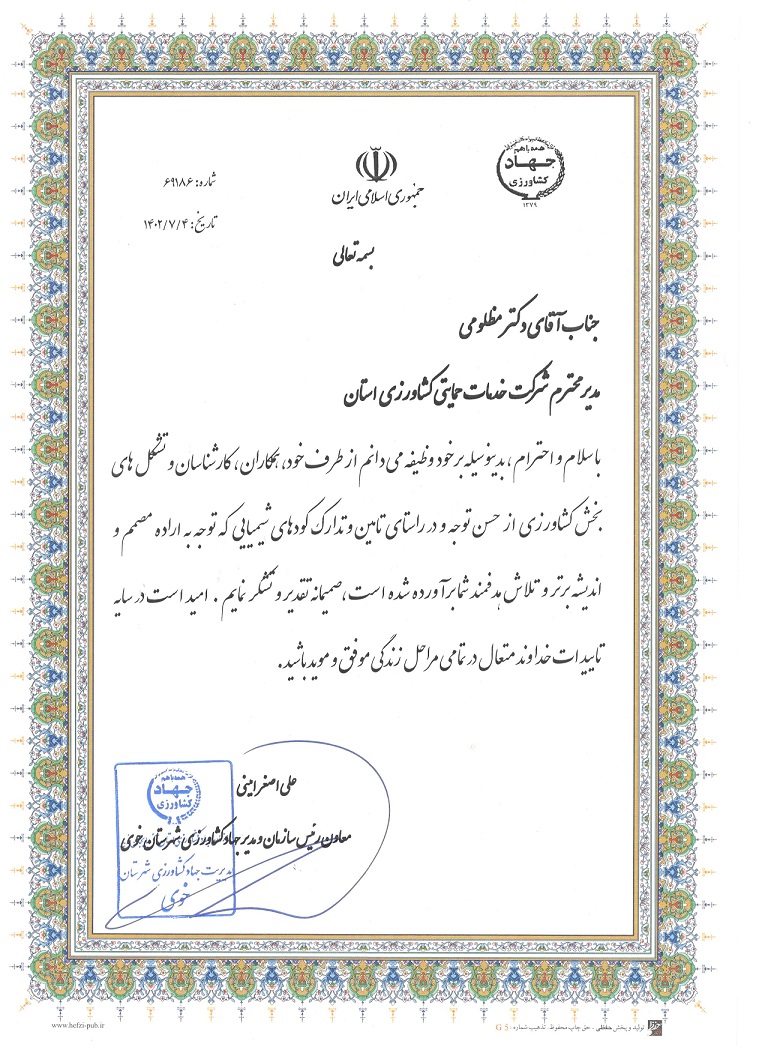 همه با هم
جهاد
کشاورزی
۱۳۷۹
جمهوری اسلامی ایران
شماره: ۶۹۱۸۶
تاریخ: ۱۴۰۲/۷/۴
بسمه تعالی
جناب آقای دکتر مظلومی
مدیر محترم شرکت خدمات حمایتی کشاورزی استان
با سلام و احترام ، بدینوسیله بر خود وظیفه می دانم از طرف خود، همکاران، کارشناسان و تشکل های
بخش کشاورزی از حسن توجه و در راستای تامین و تدارک کودهای شیمیایی که توجه به اراده مصمم و
اندیشه برتر و تلاش هدفمند شما برآورده شده است، صمیمانه تقدیر و تشکر نمایم . امید است در سایه
تاییدات خداوند متعال در تمامی مراحل زندگی موفق و موید باشید.
علی اصغر امینی
معاون رئیس سازمان و مدیر جهاد کشاورزی شهرستان خوی
همه با هم
جهاد
کشاورزی
مدیریت جهاد کشاورزی شهرستان
خوی
www.hefzi-pub.ir
تولید و پخش حفظی - حق چاپ محفوظ. تذهیب شماره: G 5